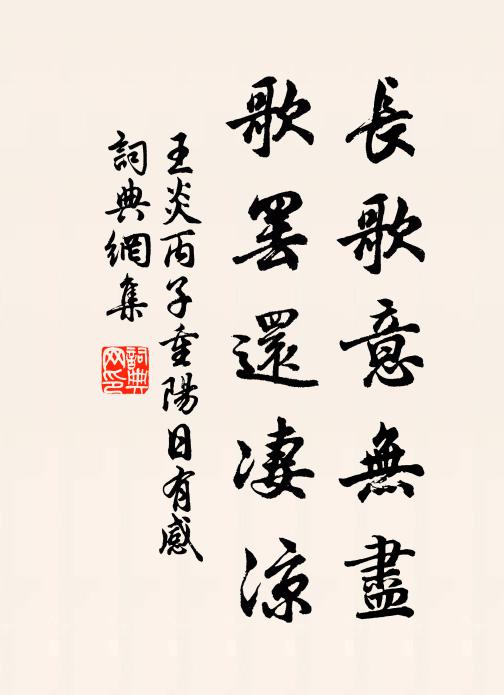 長歌意無盡
歌罷還淒涼
王炎丙子重陽日有感
詞典網集
詞典網印